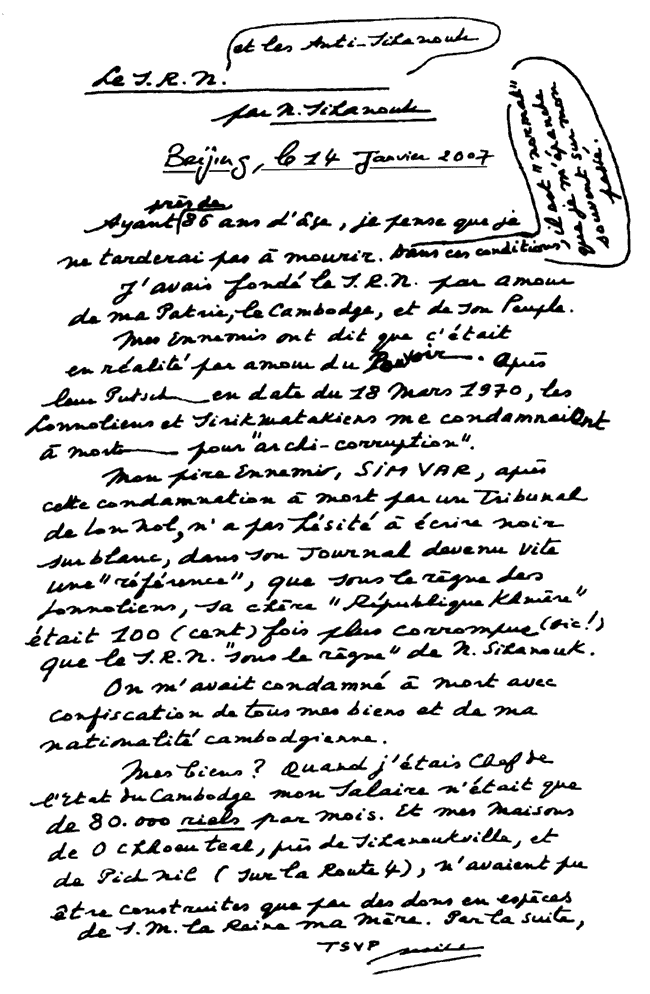 et les Anti-Sihanouk
Le S.R.N.
par N. Sihanouk
Beijing, le 14 Janvier 2007
près de
Ayant 86 ans d'âge, je pense que je
ne tarderai pas à mourir. Dans ces conditions,
il est "normal"
que je m'épanche
souvent, sur mon
passé.
J'avais fondé le S.R.N. par amour
de ma Patrie, le Cambodge, et de son Peuple.
Mes Ennemis ont dit que c'était
en réalité par amour du Pouvoir. Après
leur Putsch en date du 18 Mars 1970, les
Lonnoliens et Sirikmatakiens me condamnaient
à mort pour "archi-corruption".
Mon pire Ennemi, SIM VAR, après
cette condamnation à mort par un Tribunal
de Lon Nol, n'a pas hésité à écrire noir
sur blanc, dans son Journal devenu vite
une "référence", que sous le règne des
Lonnoliens, sa chère "République Khmère"
était 100 (cent) fois plus corrompue (sic!)
que le S.R.N. "sous le règne" de N. Sihanouk.
On m'avait condamné à mort avec
confiscation de tous mes biens et de ma
nationalité cambodgienne.
Mes biens? Quand j'étais Chef de
l'Etat du Cambodge mon Salaire n'était que
de 80.000 riels par mois. Et mes Maisons
de O Chhoeu Teal, près de Sihanoukville, et
de Pich Nil (sur la Route 4), n'avaient pu
être construites que par des dons en espèces
de S.M. la Reine ma Mère. Par la suite,
TSVP